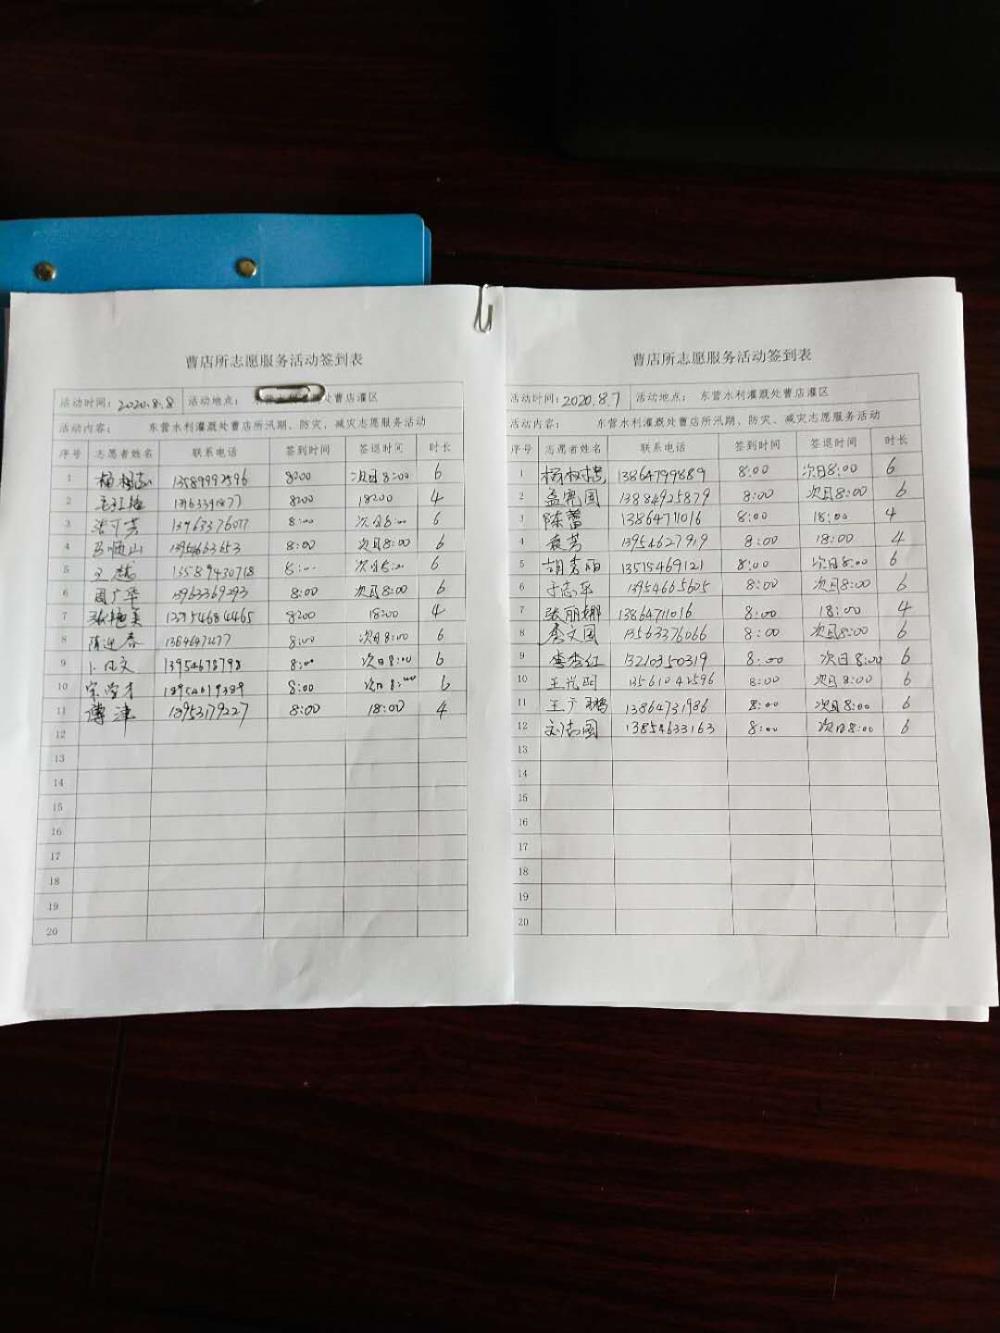 曹店所志愿服务活动签到表
活动时间: 2020.8.8 活动地点: 曹店灌区
活动内容: 东营水利灌溉处曹店所汛期、防灾、减灾志愿服务活动
序号 志愿者姓名 联系电话 签到时间 签退时间 时长
1 13589992596 8:00 次日8:00 6
2 8:00 18:00 4
3 13963376077 8:00 次日8:00 6
4 8:00 次日8:00 6
5 王 13589430718 8:00 次日8:00 6
6 周广华 13963369293 8:00 次日8:00 6
7 张艳美 8:00 18:00 4
8 陈迎春 8:00 次日8:00 6
9 13954678798 8:00 次日8:00 6
10 8:00 次日8:00 6
11 傅津 18953179227 8:00 18:00 4
12
13
14
15
16
17
18
19
20
曹店所志愿服务活动签到表
活动时间: 2020.8.7 活动地点: 东营水利灌溉处曹店灌区
活动内容: 东营水利灌溉处曹店所汛期、防灾、减灾志愿服务活动
序号 志愿者姓名 联系电话 签到时间 签退时间 时长
1 13864799889 8:00 次日8:00 6
2 孟宪国 13884925879 8:00 次日8:00 6
3 陈蕾 13864711016 8:00 18:00 4
4 袁芳 13954627919 8:00 18:00 4
5 胡秀丽 13515469121 8:00 次日8:00 6
6 于志 13954665605 8:00 次日8:00 6
7 张丽娜 13864711016 8:00 18:00 4
8 文国 13563376066 8:00 次日8:00 6
9 李秀红 13210350319 8:00 次日8:00 6
10 王 13561042596 8:00 次日8:00 6
11 王广鹏 13864731986 8:00 次日8:00 6
12 刘志国 13854633163 8:00 次日8:00 6
13
14
15
16
17
18
19
20